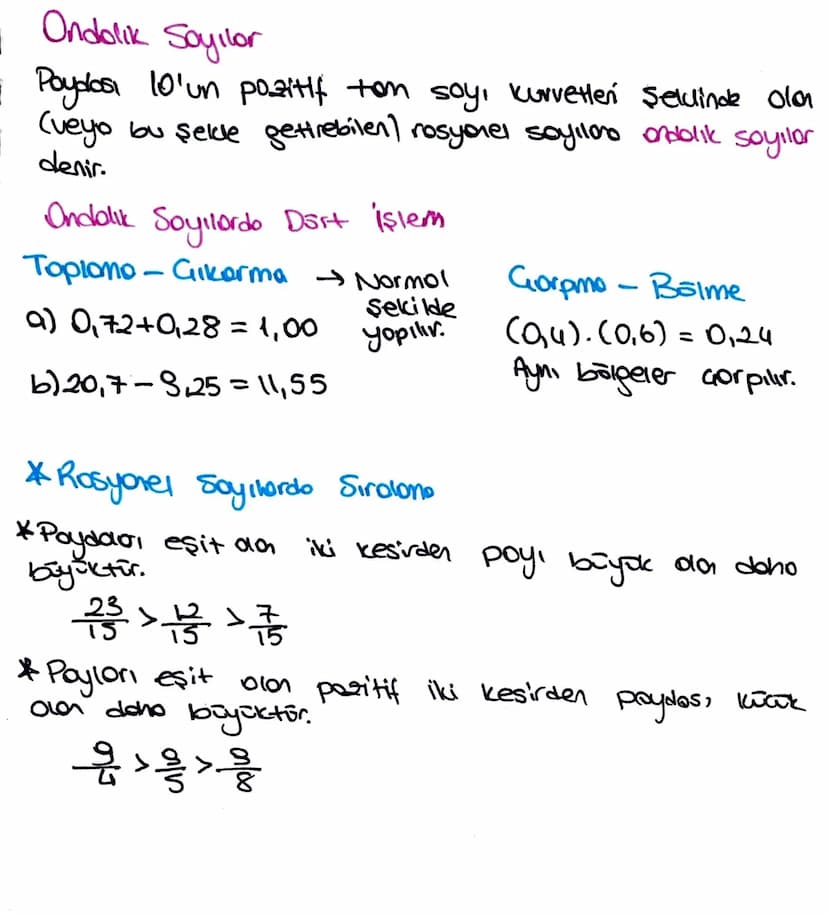 Ondalık Sayılar
Paydası 10'un pozitif tam sayı kuvvetleri şeklinde olan
(veya bu şekle getirebilen) rasyonel sayılara ondalık sayılar
denir.
Ondalık Sayılarda Dört İşlem
Toplama – Çıkarma → Normal şekilde yapılır.
a) 0,72+0,28 = 1,00
b) 20,7 – 9,25 = 11,55
Çarpma – Bölme
(0,4).(0,6) = 0,24
Aynı bölgeler çarpılır.
* Rasyonel Sayılarda Sıralama
* Paydaları eşit olan iki kesirden payı büyük olan daha
büyüktür.
23/15 > 12/15 > 7/15
* Payları eşit olan pozitif iki kesirden paydası küçük
olan daha büyüktür.
9/4 > 9/5 > 9/8